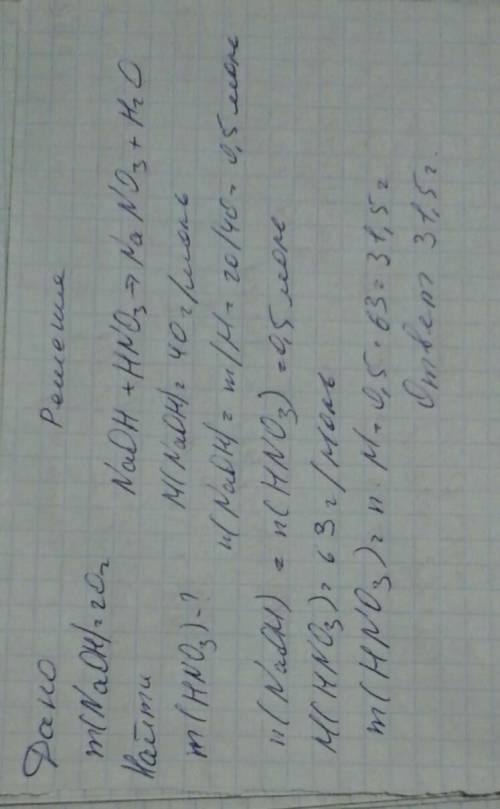 Дано
Решение
m(NaOH)=20г
Найти
m(HNO₃)-?
NaOH + HNO₃ → NaNO₃ + H₂O
M(NaOH)= 40 г/моль
n(NaOH)= m/M = 20/40 = 0,5 моль
n(NaOH) = n(HNO₃) = 0,5 моль
M(HNO₃)= 63 г/моль
m(HNO₃)= n · M = 0,5 · 63 = 31,5 г
Ответ 31,5 г.